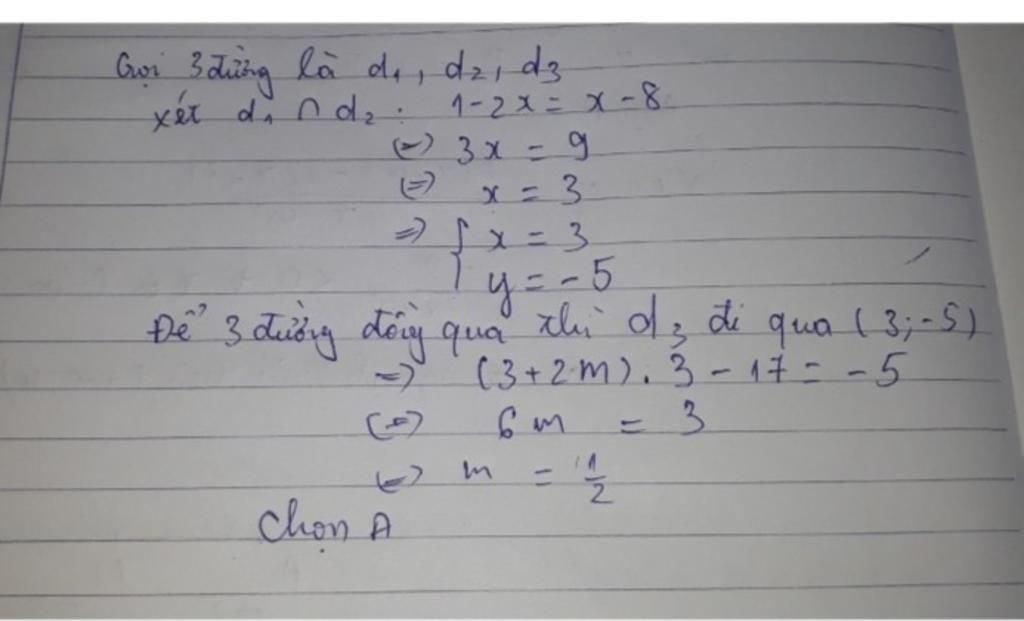 Gọi 3 đường là d₁, d₂, d₃
xét d₁ ∩ d₂ : 1 - 2x = x - 8
(=) 3x = 9
(=) x = 3
=> { x = 3
y = -5
Để 3 đường đồng qua thì d₃ đi qua (3;-5)
=> (3+2m).3 - 17 = -5
(=) 6m = 3
(=) m = 1/2
Chọn A